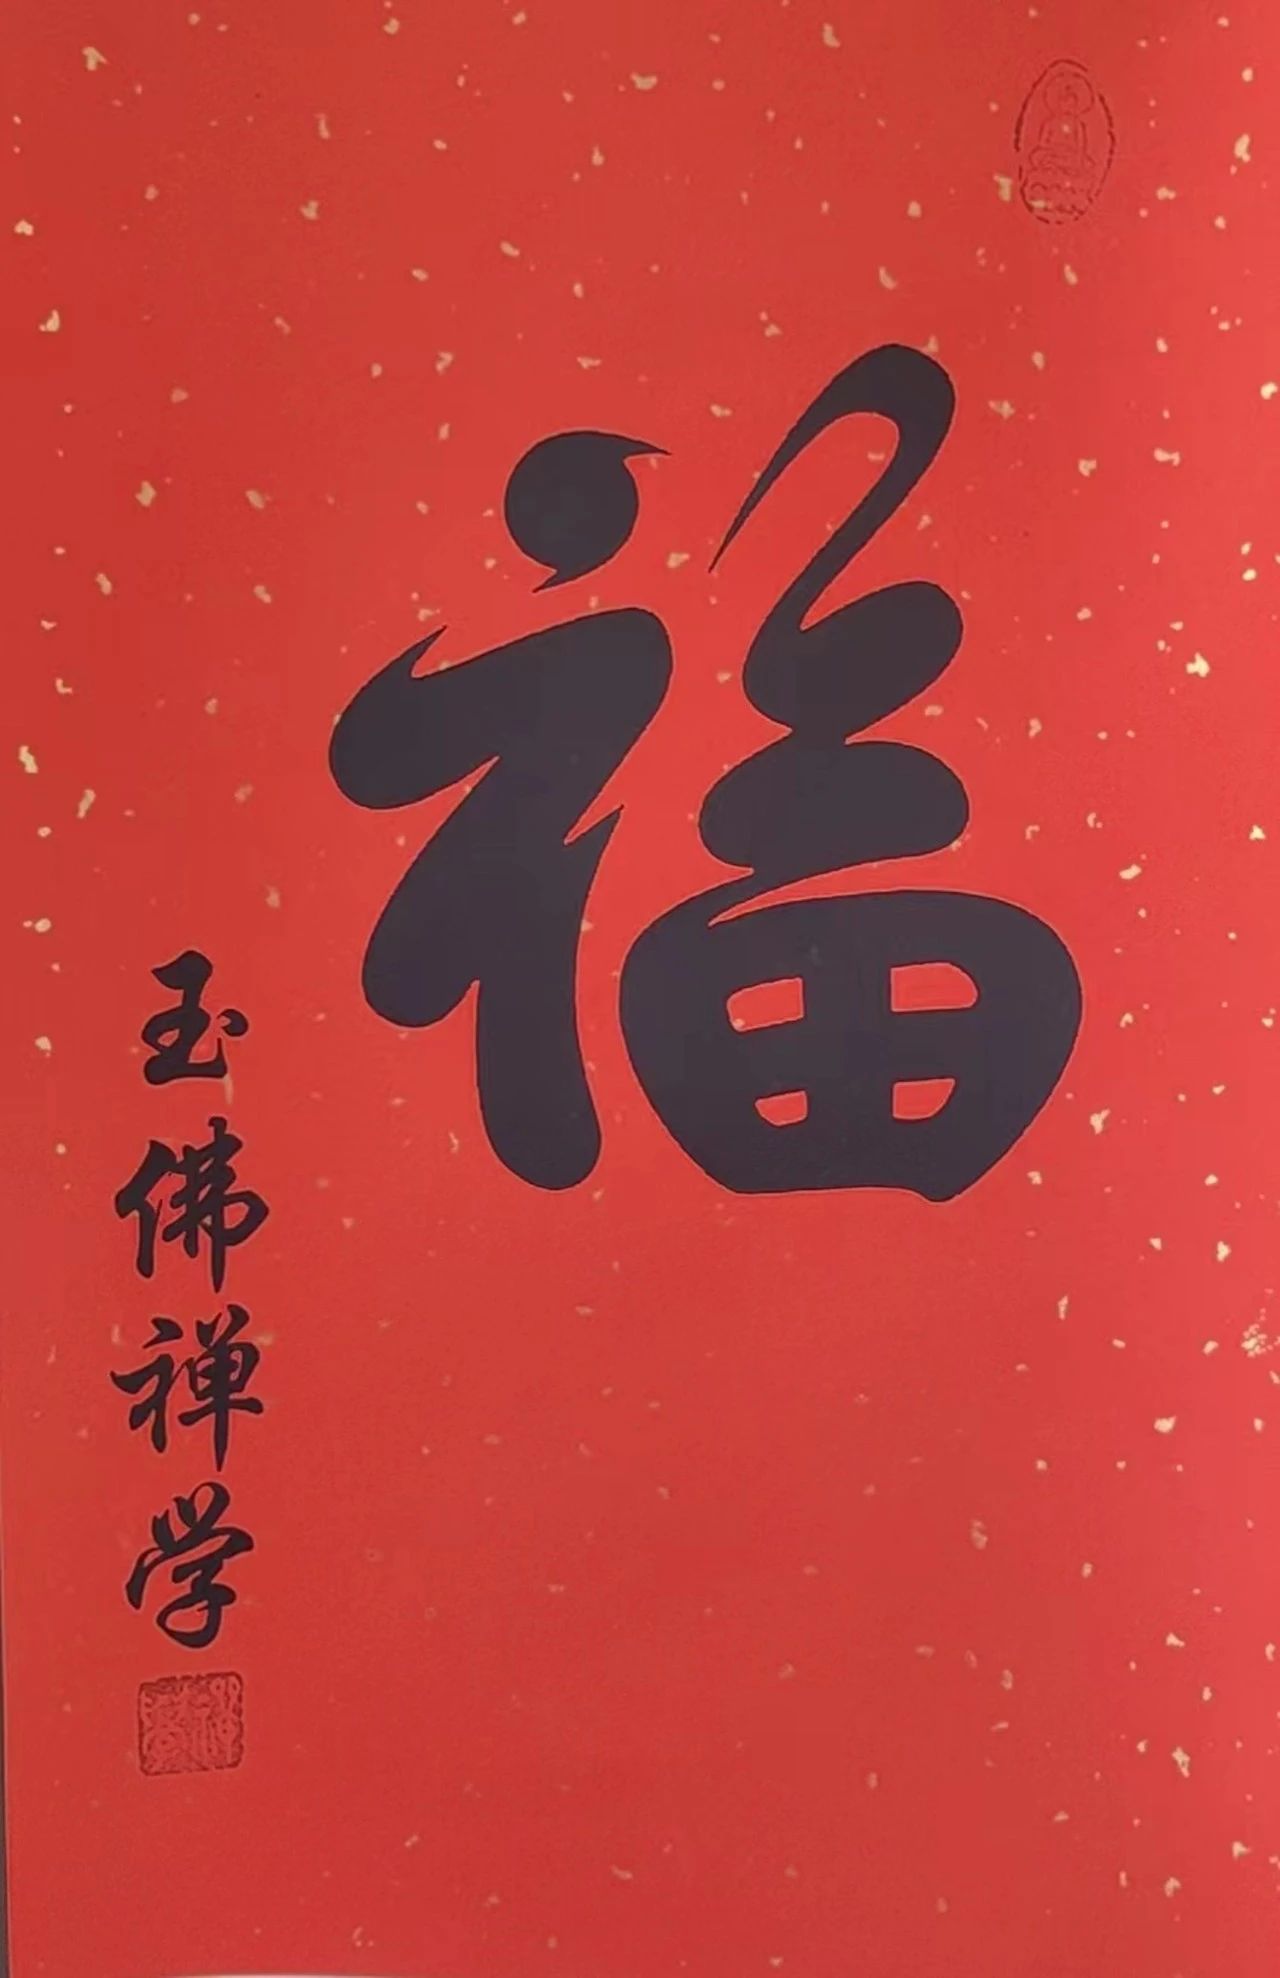 福
玉佛禅学